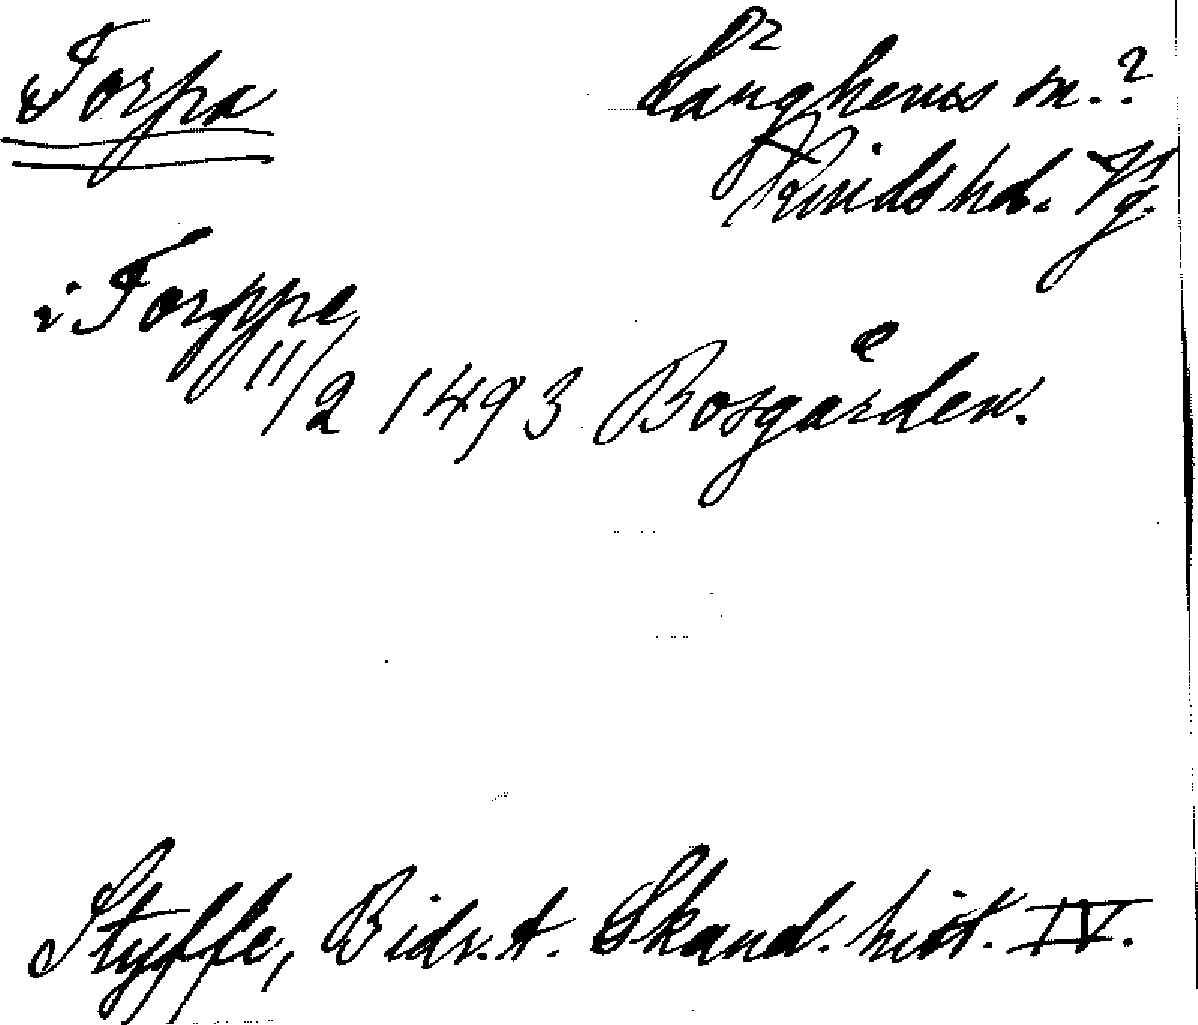 Torpa
Länghems sn.?
Kinds hd. Vg.
i Torppe
11/2 1493 Bosgården.
Styffe, Bidr. t. Skand. hist. IV.